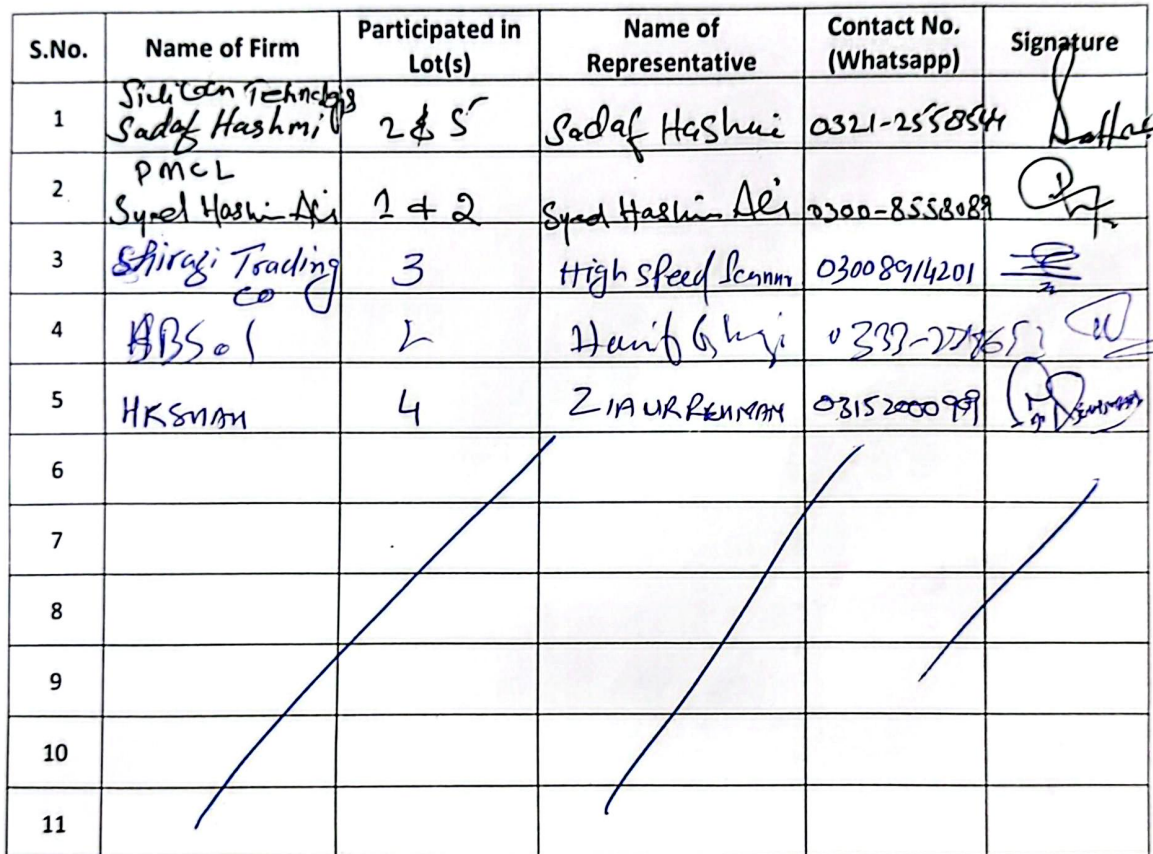 S.No. Name of Firm Participated in Lot(s) Name of Representative Contact No. (Whatsapp) Signature
1 Sadaf Hashmi 2 & 5 Sadaf Hashmi 0321-2558541
PMCL
2 Syed Hashim Ali 1 & 2 Syed Hashim Ali 0300-8558089
3 Shirazi Trading 3 High Speed 03008914201
co
4 2 Hanif
5 HKSHAH 4 ZIA UR REHMAN 03152000999
6
7
8
9
10
11